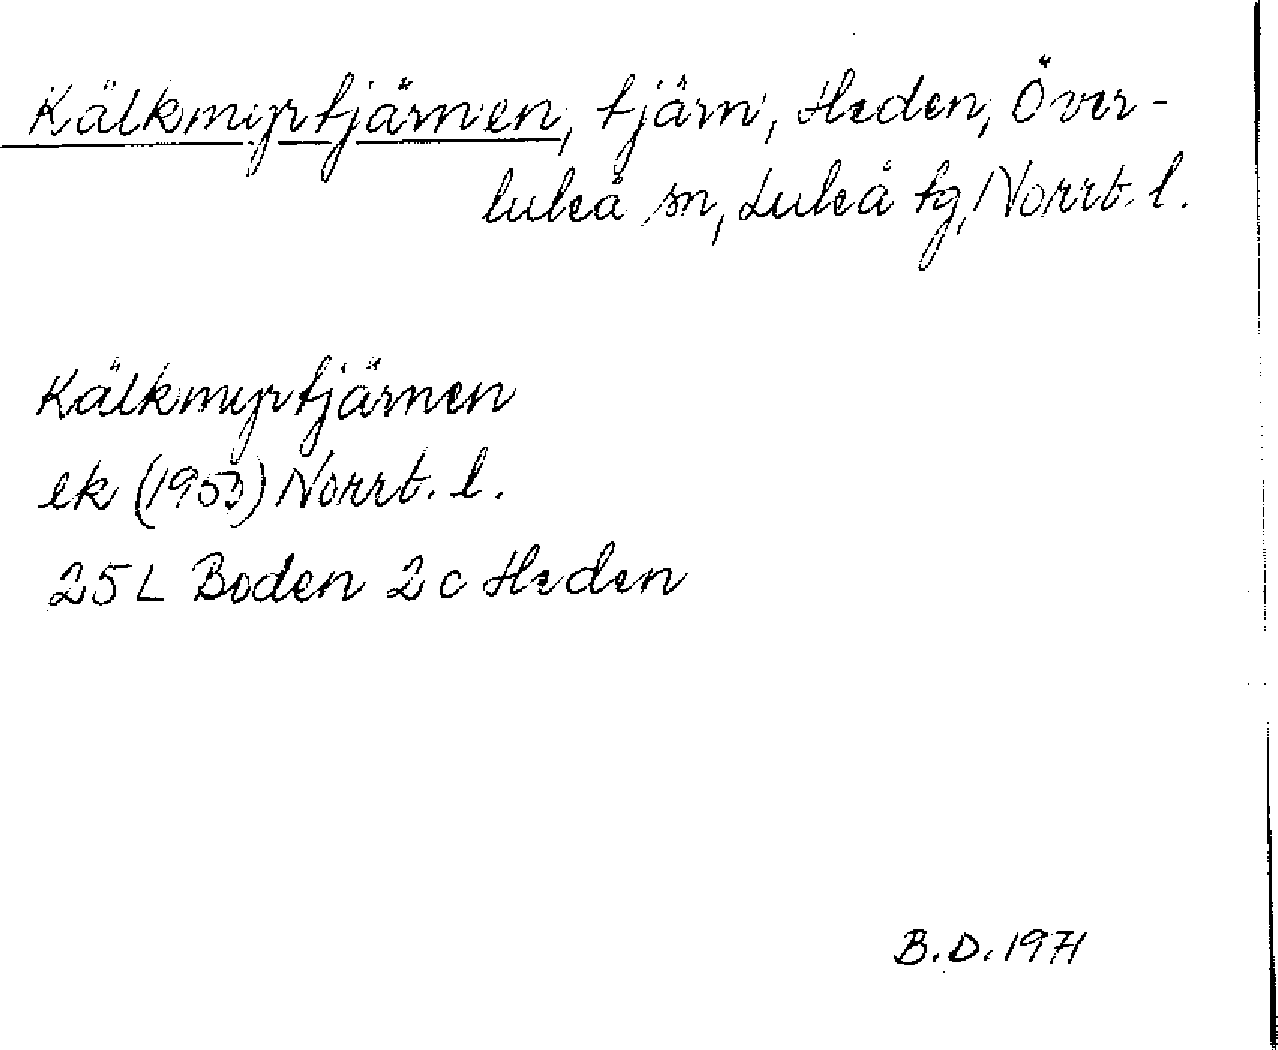 Kälkmyrtjärnen, tjärn, Heden, Över-
luleå sn, Luleå tg, Norrb. l.
Kälkmyrtjärnen
ek (1953) Norrb. l.
25 L Boden 2 c Heden
B.D. 1971